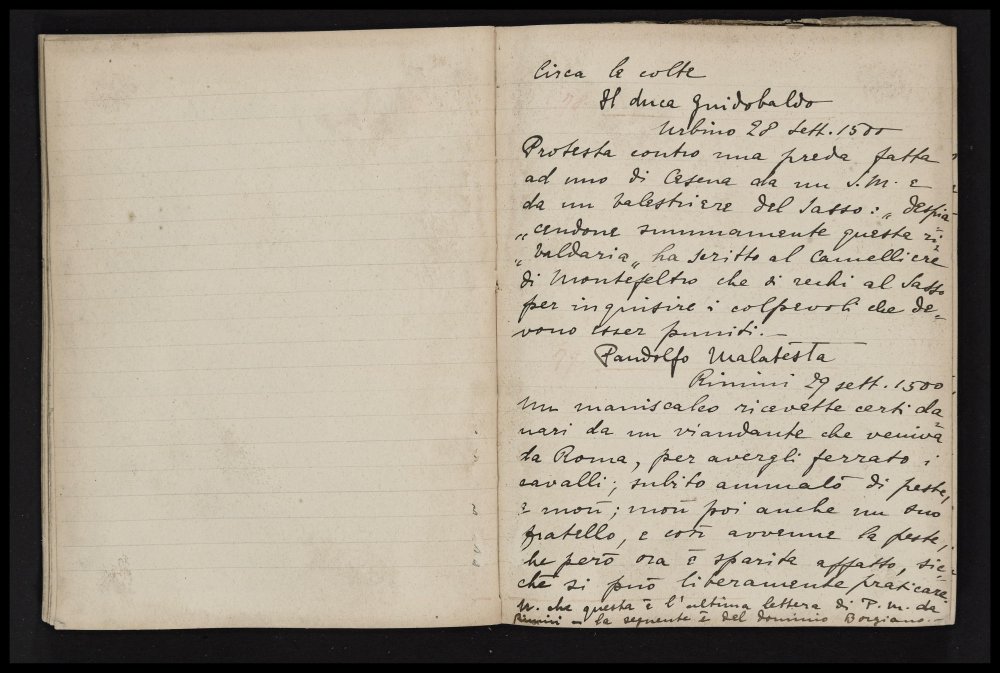 Circa le colte
Il duca Guidobaldo
Urbino 28 Sett. 1500
Protesta contro una preda fatta
ad uno di Cesena da un S. M. e
da un balestriere del Sasso: „ despia
„ cendone summamente questa ri=
„ baldaria „ ha scritto al Camelliere
di Montefeltro che si rechi al Sasso
per inquisire i colpevoli che de=
vono esser puniti. —
Pandolfo Malatesta
Rimini 29 sett. 1500
Un maniscalco ricevette certi da=
nari da un viandante che veniva
da Roma, per avergli ferrato i
cavalli; subito ammalò di peste,
e morì; morì poi anche un suo
fratello, e così avvenne la peste,
che però ora è sparita affatto, sic=
chè si può liberamente praticare.
N. che questa è l'ultima lettera di P. M. da
Rimini — la seguente è del dominio Borgiano. —